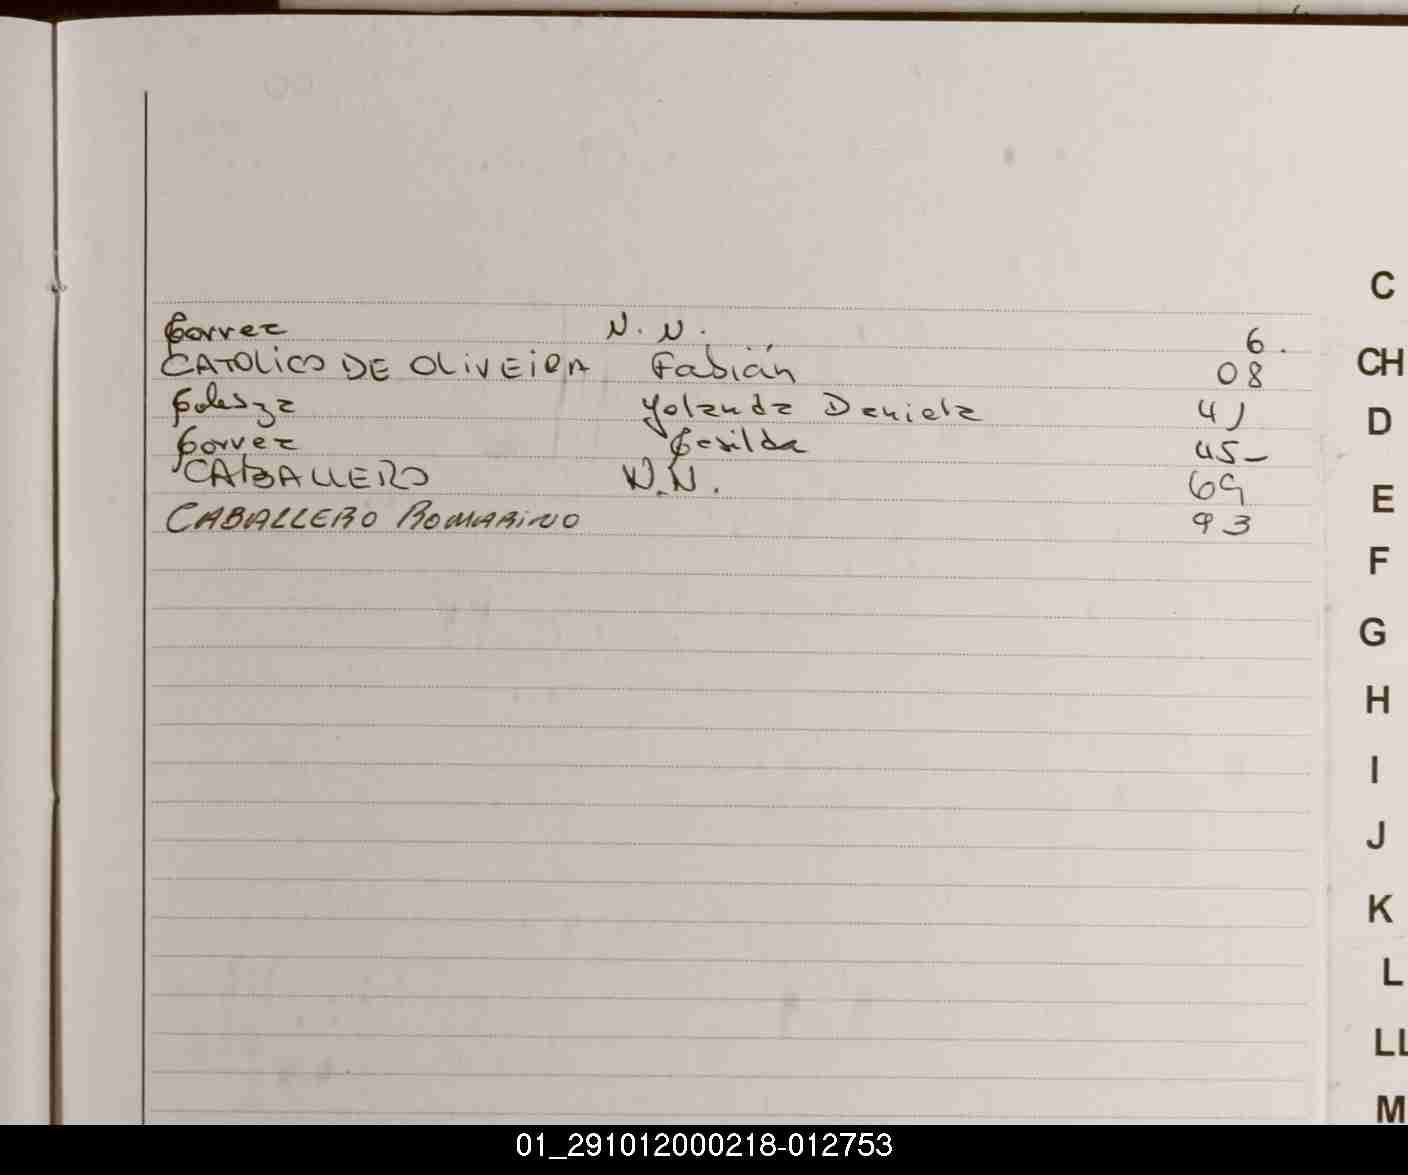 Correz N. N. 6.
CATOLICO DE OLIVEIRA Fabián 08
Yolanda Daniela 41
Correz Casilda 45-
CABALLERO N.N. 69
CABALLERO ROMARINO 93
C
CH
D
E
F
G
H
I
J
K
L
LL
M
01_291012000218-012753